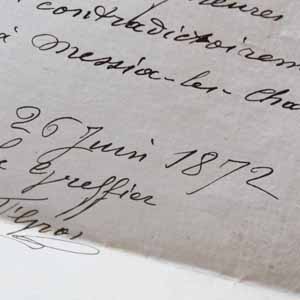 heures
contradictoirem
à Messia-les-Cha
26 Juin 1872
Greffier